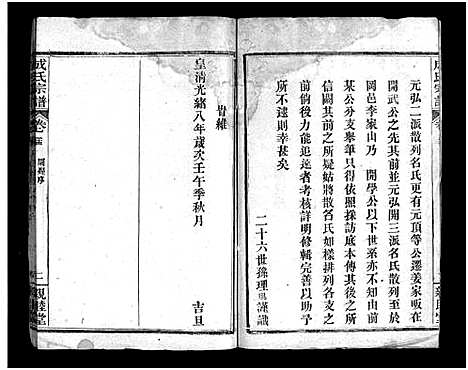 元弘二派散列名氏更有元頂等公遷姜家畈在
開武公之先其前並元弘開三派名氏散列至於
岡邑李家山乃 開學公以下世系亦不知由前
某公分支舉筆只得依照採訪底本傳其後之所
信闕其前之所疑姑將散名氏如樣排列各支之
前倘後有力能追遠者考核詳明修輯完善以助予
所不逮則幸甚矣
二十六世孫理 謹識
旹維
皇清光緒八年歲次壬午季秋月 吉旦
成氏宗譜 卷
二 親睦堂